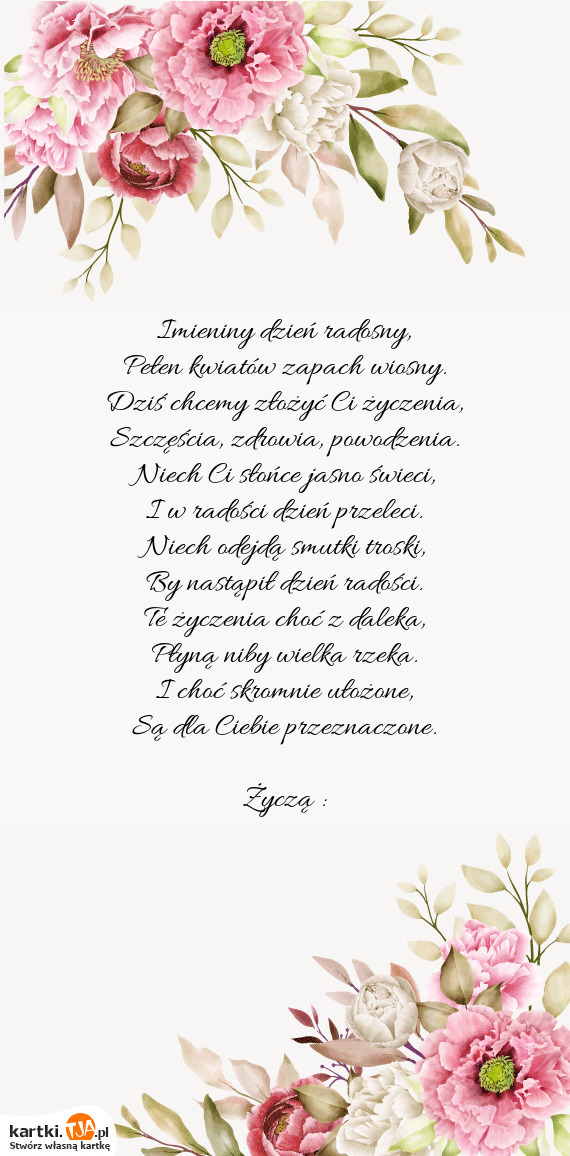 Imieniny dzień radosny,
Pełen kwiatów zapach wiosny.
Dziś chcemy złożyć Ci życzenia,
Szczęścia, zdrowia, powodzenia.
Niech Ci słońce jasno świeci,
I w radości dzień przeleci.
Niech odejdą smutki troski,
By nastąpił dzień radości.
Te życzenia choć z daleka,
Płyną niby wielka rzeka.
I choć skromnie ułożone,
Są dla Ciebie przeznaczone.
Życzą :
kartki.TJA.pl
Stwórz własną kartkę